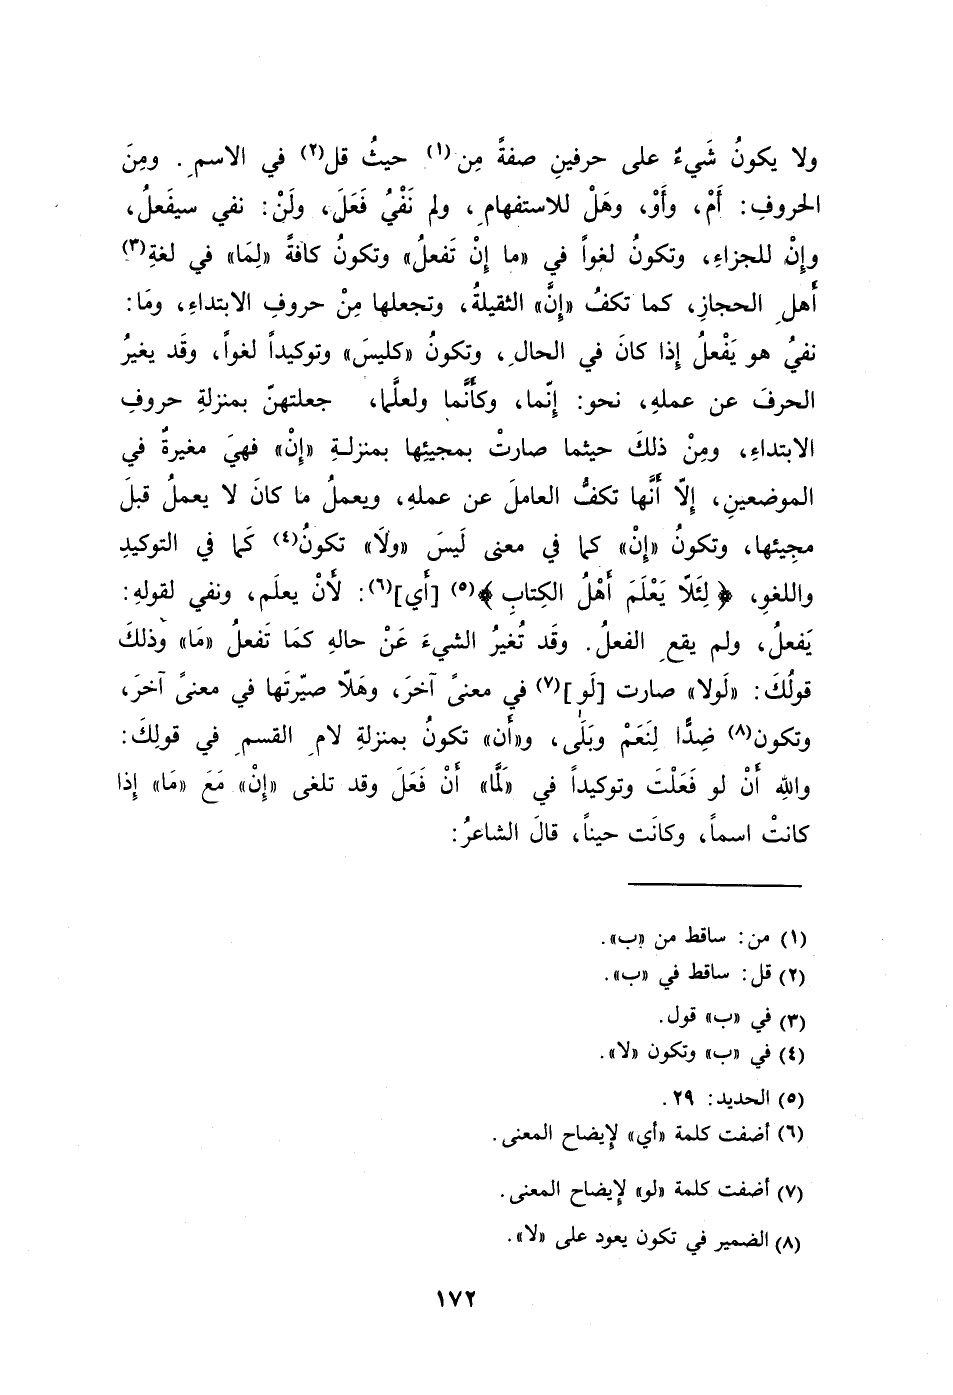 ولا يكونُ شَيءٌ على حرفينِ صفةً مِن(١) حيثُ قل(٢) في الاسمِ. ومِنَ
الحروفِ: أَمْ، وأَوْ، وهَلْ للاستفهامِ، ولم نَفْيُ فَعَلَ، ولَنْ: نفي سيفَعلُ،
وإِنْ للجزاءِ، وتكونُ لغواً في «ما إِنْ تَفعلُ» وتكونُ كافةً «لِمَا» في لغةِ(٣)
أَهلِ الحجازِ، كما تكفُ «إِنَّ» الثقيلةُ، وتجعلها مِنْ حروفِ الابتداءِ، ومَا:
نفيُ هو يَفْعلُ إِذا كانَ في الحالِ، وتكونُ «كليسَ» وتوكيداً لغواً، وقَد يغيرُ
الحرفَ عن عملهِ، نحو: إِنّما، وكأَنَّما ولعلَّما، جعلتهنّ بمنزلةِ حروفِ
الابتداءِ، ومِنْ ذلكَ حيثما صارتْ بمجيئِها بمنزلةِ «إِنْ» فهيَ مغيرةٌ في
الموضعينِ، إِلّا أَنَّها تكفُّ العاملَ عن عملهِ، ويعملُ ما كانَ لا يعملُ قبلَ
مجِيئها، وتكونُ «إِنْ» كما في معنى لَيسَ «ولَا» تكونُ(٤) كَما في التوكيدِ
واللغوِ، ﴿ لِئَلّا يَعْلَمَ أَهْلُ الكِتابِ ﴾(٥) [أَي](٦): لأَنْ يعلَم، ونفي لقولهِ:
يَفعلُ، ولم يقعِ الفعلُ. وقَد تُغيرُ الشيءَ عَنْ حالهِ كمَا تَفعلُ «مَا» وذلكَ
قولُكَ: «لَولا» صارت [لَو](٧) في معنىً آخرَ، وهَلّا صيّرتَها في معنىً آخرَ،
وتكون(٨) ضِدًّا لِنَعَمْ وبَلَى، و«أَن» تكونُ بمنزلةِ لامِ القسمِ في قولِكَ:
واللهِ أَنْ لو فَعَلْتَ وتوكيداً في «لَمَّا» أَنْ فَعَلَ وقد تلغى «إِنْ» مَعَ «مَا» إِذا
كانتْ اسماً، وكانَت حيناً، قالَ الشاعرُ:
(١) من: ساقط من «ب».
(٢) قل: ساقط في «ب».
(٣) في «ب» قول.
(٤) في «ب» وتكون «لا».
(٥) الحديد: ٢٩.
(٦) أضفت كلمة «أي» لإيضاح المعنى.
(٧) أضفت كلمة «لو» لإيضاح المعنى.
(٨) الضمير في تكون يعود على «لا».
١٧٢